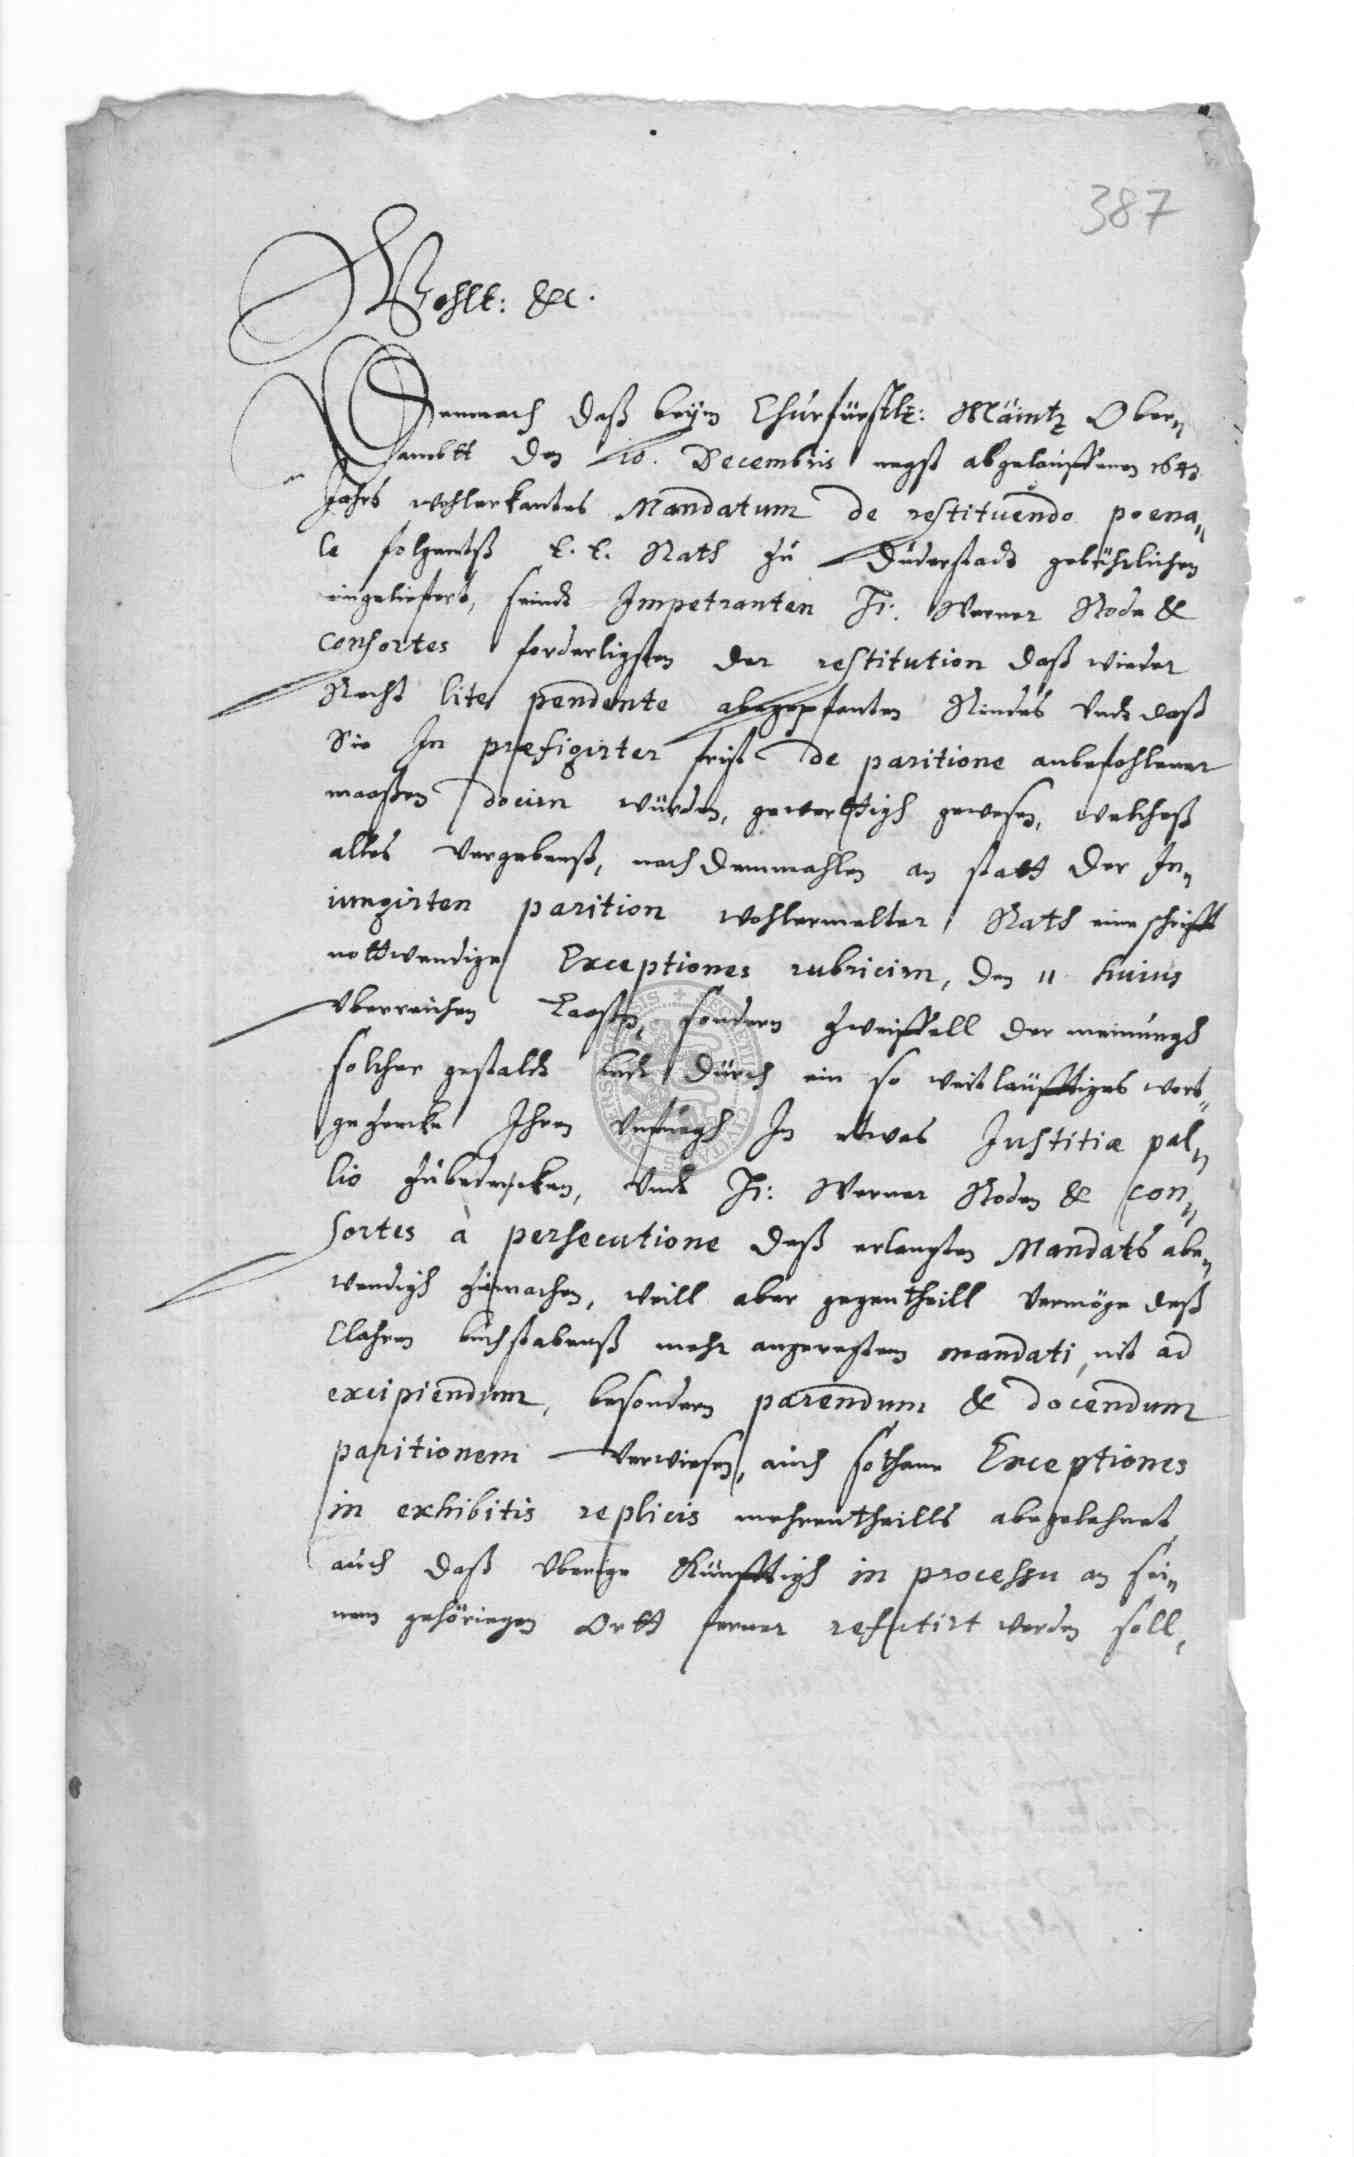 387
Wohlt: &c.
Demnach daß beÿm Churfürstlt: Mäintz Ober„
ambtt den 10. Decembris negst abgelauffenen 1643
Jahrs wohlerkantes Mandatum de restituendo poena„
le folgentß E. E. Rath zu Duderstadt gebührlichen
eingeliefert, seindt Impetranten Hr: Werner Rode &
consortes forderligsten der restitution daß wieder
Recht lite pendente abgepfanten Rindes undt daß
Sie In præfigirter frist de paritione anbefohlener
maaßen dociren würden, gewerttigh gewesen, welcheß
alles vergebenß, nach demmahlen an statt der In„
iungirten parition wohlermelter Rath eine schrifft
nottwendige Exceptiones rubriciren, den 11 huius
überreichen Laaßen, sondern zweiffell der meinungh
solcher gestaldt undt durch ein so weitläufftiges wort„
gezencke Ihren unfuegh In etwas Justitiæ pal„
lio zubedecken, undt Hr: Werner Roden & con„
sortes à persecutione deß erlangten Mandats abe„
wendigh zumachen, weill aber gegentheill vermöge deß
Clahren buchstabenß mehr angeregtem mandati, nit ad
excipiendum, besondern parendum & docendum
paritionem verwiesen, auch sothane Exceptiones
in exhibitis replicis mehrentheills abgelehnet,
auch daß überige Künfftigh in processu an sei„
nem gehörigen Ortt ferner refutirt werden soll,